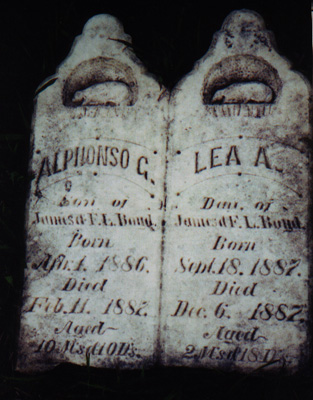 ALPHONSO G.
Son of
James & F.L. Bond.
Born
Apr. 1. 1886.
Died
Feb. 11. 1887.
Aged
10 M's & 10 D's.
LEA A.
Dau. of
James & F.L. Bond.
Born
Sept. 18. 1887.
Died
Dec. 6. 1887.
Aged
2 M's & 18 D's.